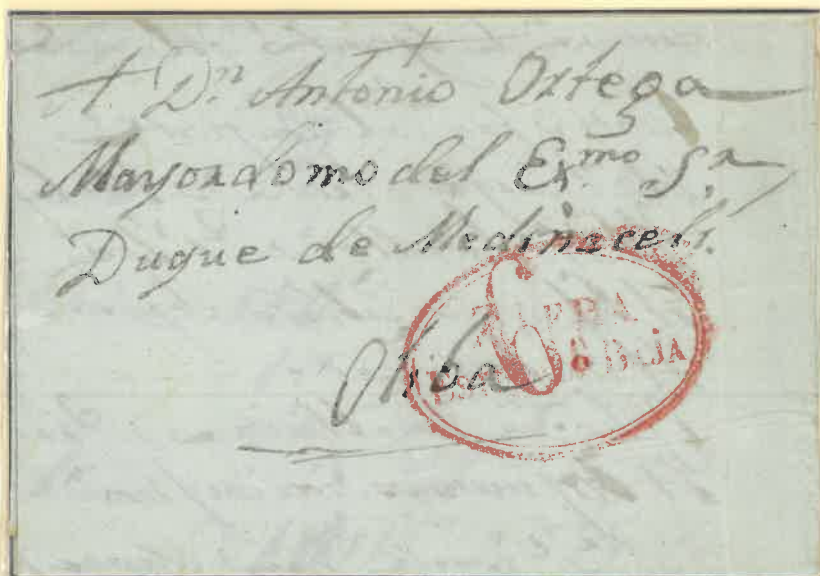 A Dn. Antonio Ortega
Mayordomo del Exmo. Sr.
Duque de Medinaceli.
Oliba
6
BAJA